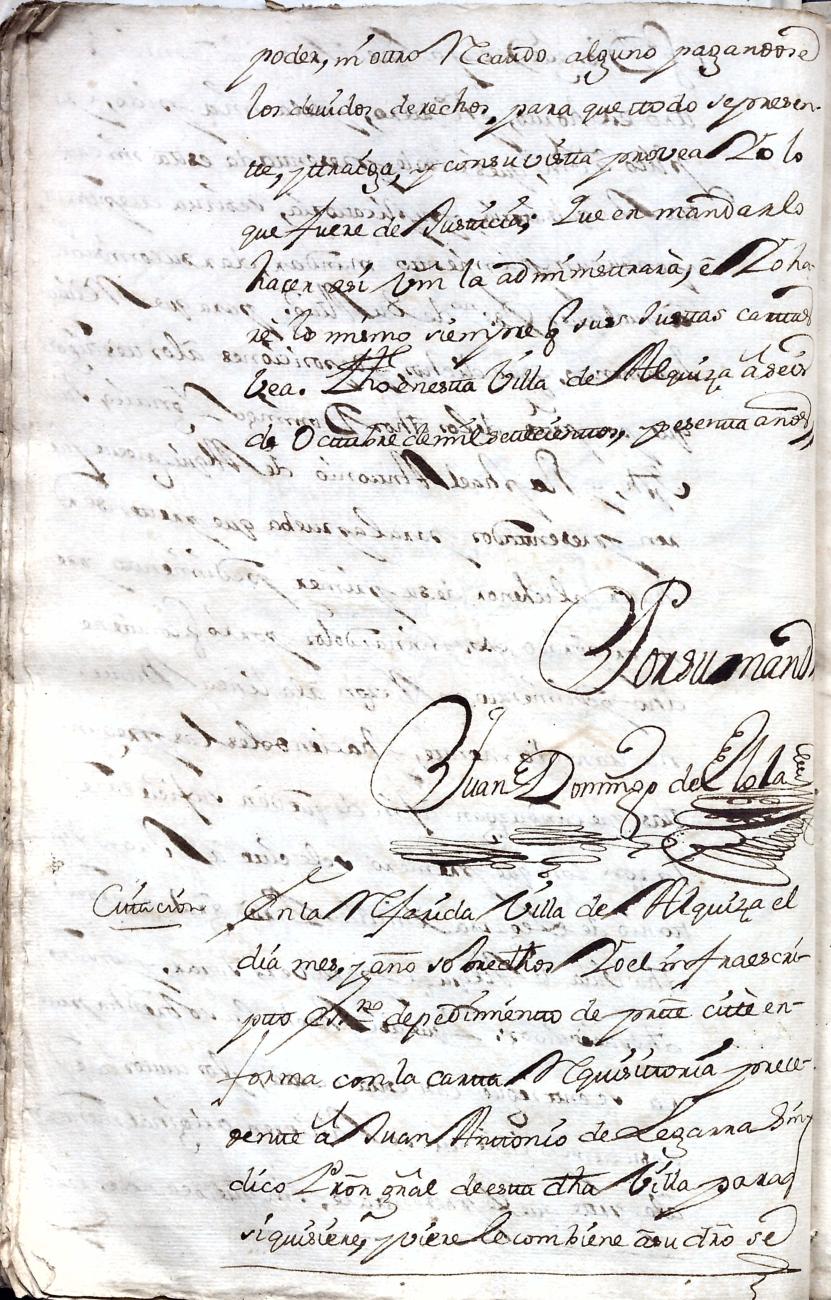 poder, ni otro Recaudo alguno pagandose
los devidos derechos, para que ttodo se presen-
tte, y ttraiga, y consu vistta provea Yo lo
que fuere de Justticia; Que en mandarlo
hacer asi Vm la administtrarà, è Yo ha
rè lo mismo siempre q̃ sus Justtas carttas
vea. Fho en estta Villa de Alquiza â seis
de Octtubre de mil settecienttos, y sesentta años,
Por su mand
Juan Domingo de
Cittacion
En la Referida Villa de Alquiza el
dia mes, y año sobredhos Yo el infraescri-
ptto Esno de pedimientto de partte cittè en-
forma con la cartta Requisittoria prece-
dentte â Juan Anttonio de Legarra Sin-
dico Prōr gñal de estta dha Villa para q̃
si quisiere, y viere le combiene â su dro se